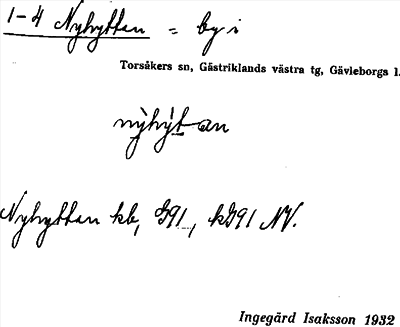 1-4 Nyhyttan = by i
Torsåkers sn, Gästriklands västra tg, Gävleborgs l.
nỳhỳt an
Nyhyttan kb, G91, kG91 NV.
Ingegärd Isaksson 1932